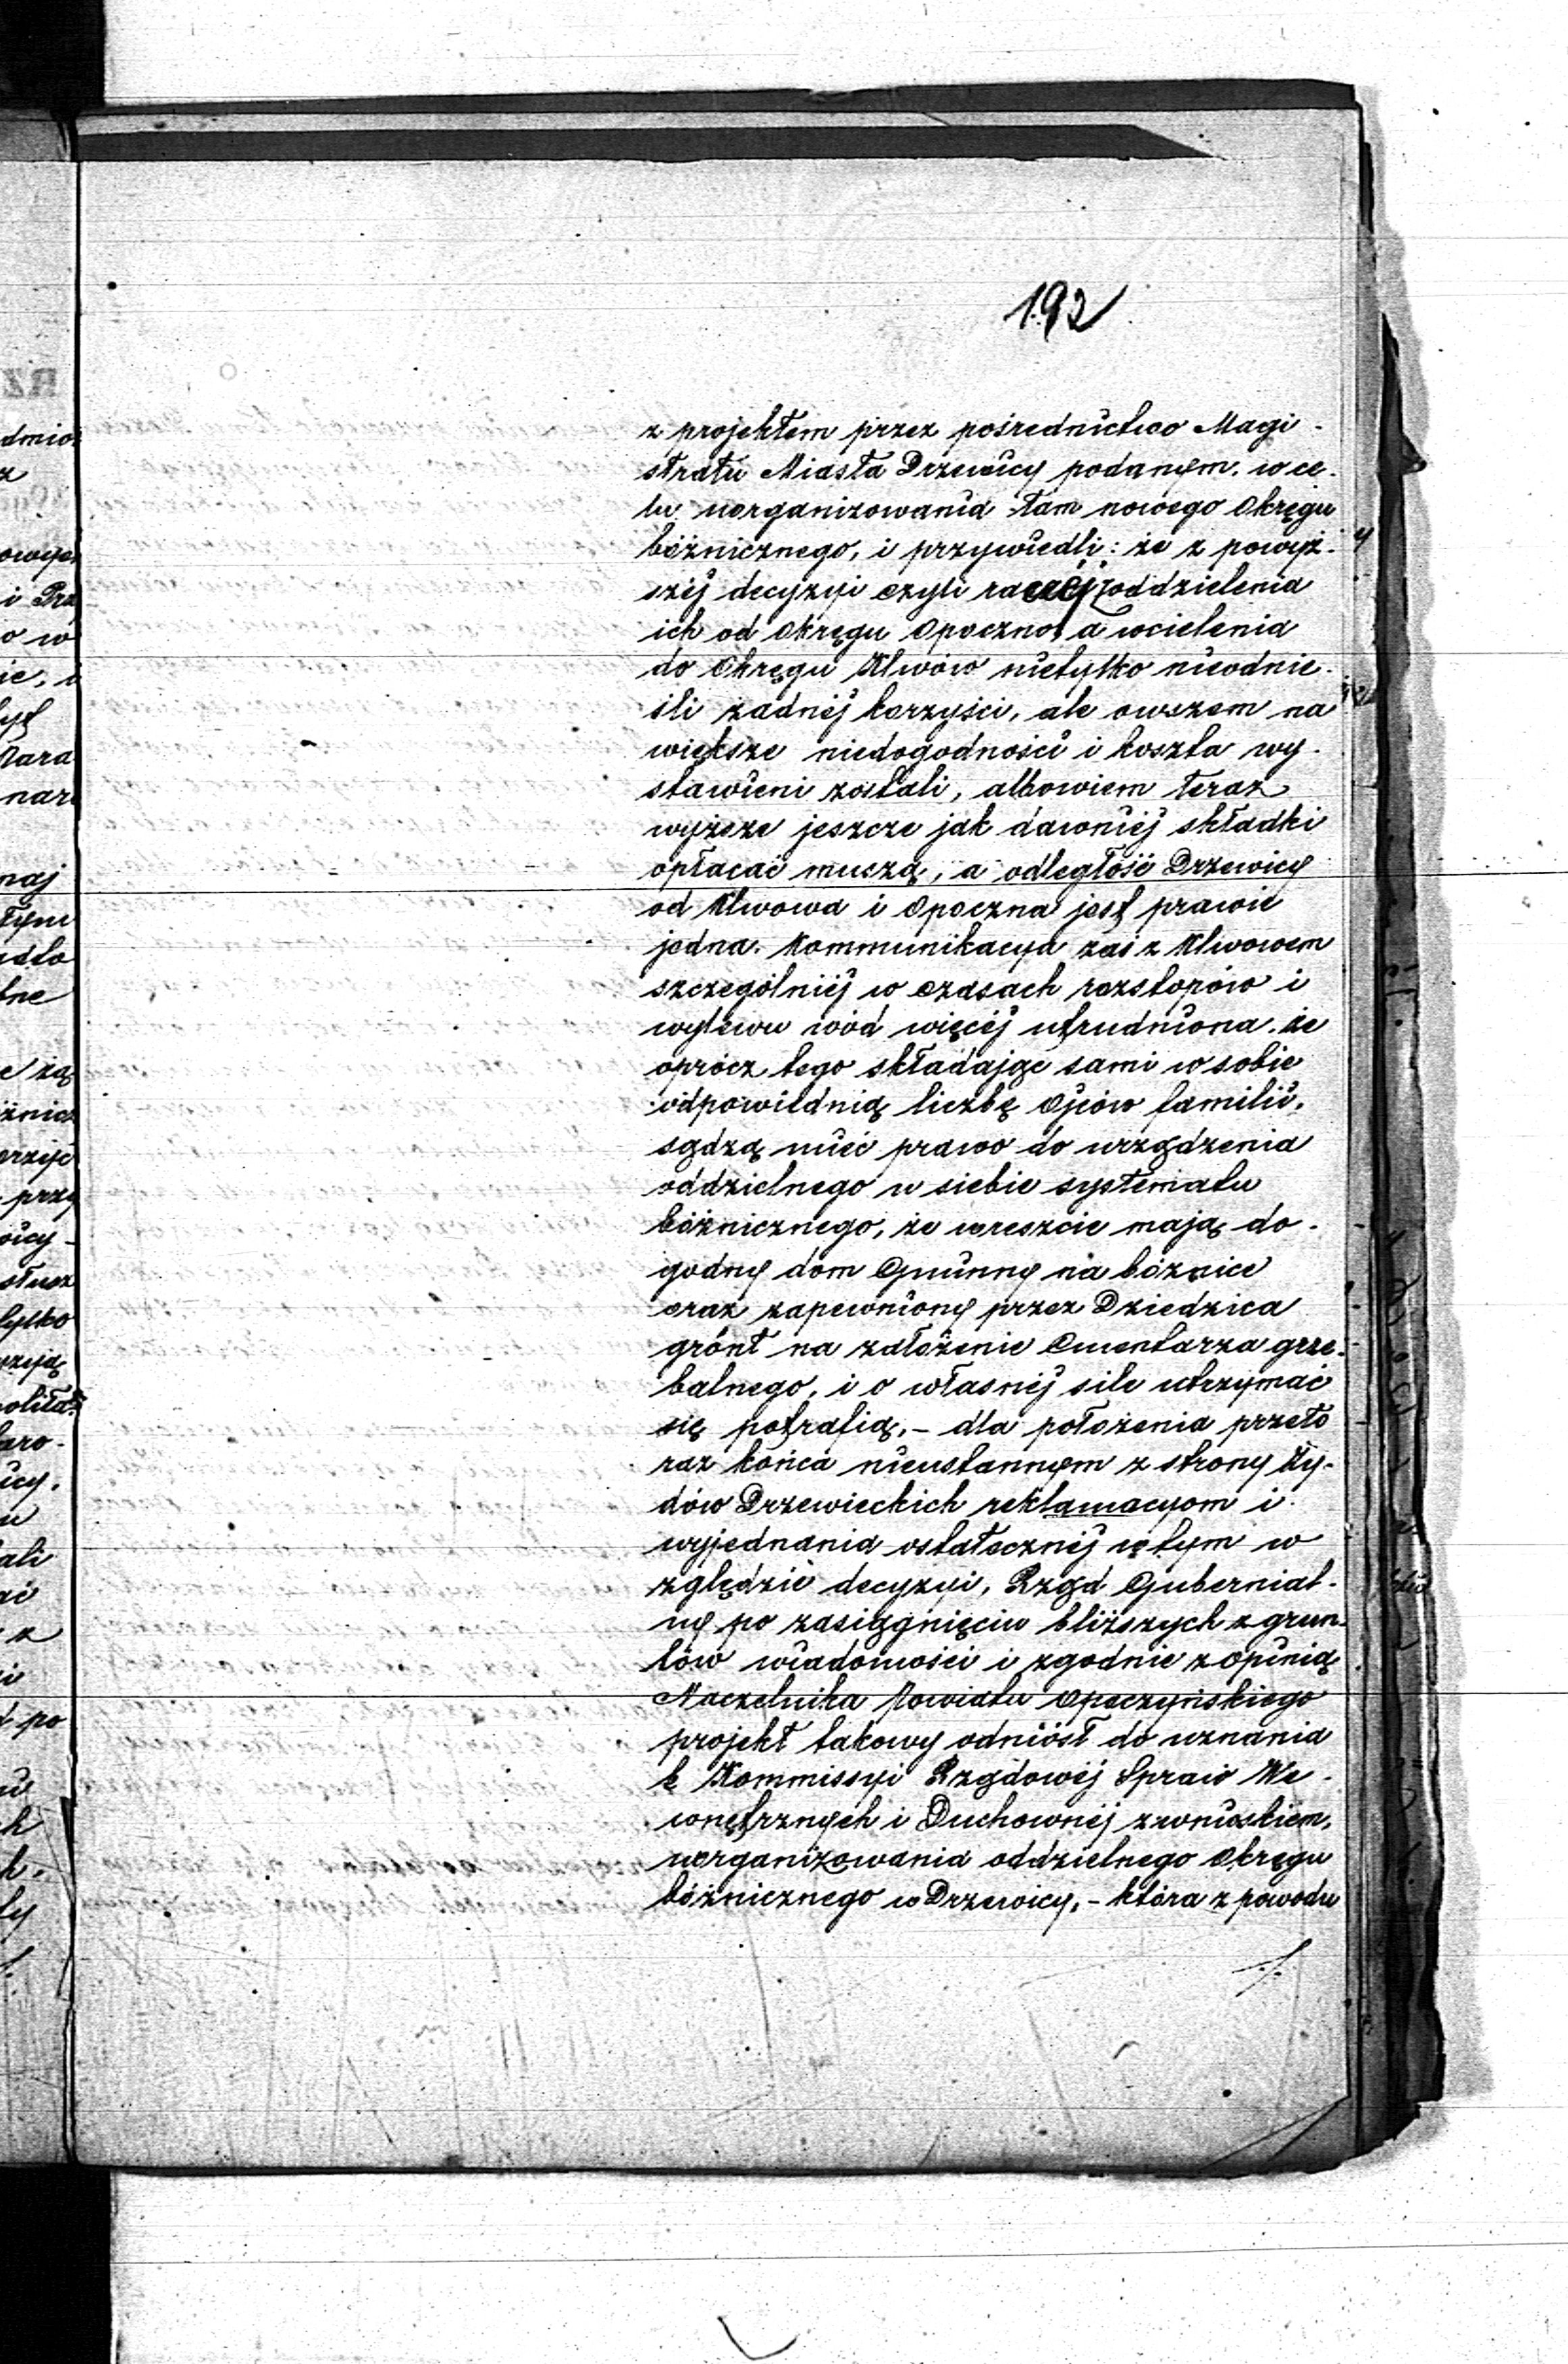 192
z projektem przez pośrednictwo Magi-
stratu Miasta Drzewicy podanym. w ce-
lu uorganizowania tam nowego Okręgu
bóżnicznego, i przywiedli: że z powyż-
széj decyzyi czyli raczéj oddzielenia
ich od Okręgu Opoczno, a wcielenia
do Okręgu Klwów nietylko nieodnie-
śli żadnéj korzyści, ale owszem na
większe niedogodności i koszta wy-
stawieni zostali, albowiem teraz
wyższe jeszcze jak dawniéj składki
opłacać muszą, a odległość Drzewicy
od Klwowa i Opoczna jest prawie
jedna. Kommunikacya zaś z Klwowem
szczególniéj w czasach rozstopów i
wylewu wód więcéj utrudniona. że
oprócz tego składając sami w sobie
odpowiednią liczbę Ojców familii,
sądzą mieć prawo do urządzenia
oddzielnego u siebie systematu
bóżnicznego, że wreszcie mają do-
godny dom Gminny na bóżnice
oraz zapewniony przez Dziedzica
grónt na założenie Cmentarza grze-
balnego, i o własnéj sile utrzymać
się potrafią. - dla położenia przeto
raz końca nieustannym z strony Ży-
dów Drzewieckich reklamacyom i
wyjednania ostatecznéj w tym w
zględzie decyzyi, Rząd Gubernial-
ny po zasiągnięciu bliższych z grun-
tów wiadomości i zgodnie z opinią
Naczelnika Powiatu Opoczyńskiego
projekt takowy odniósł do uznania
k Kommissyi Rządowéj Spraw We-
wnętrznych i Duchownéj z wnioskiem,
uorganizowania oddzielnego Okręgu
bóżnicznego w Drzewicy, - która z powodu
./.